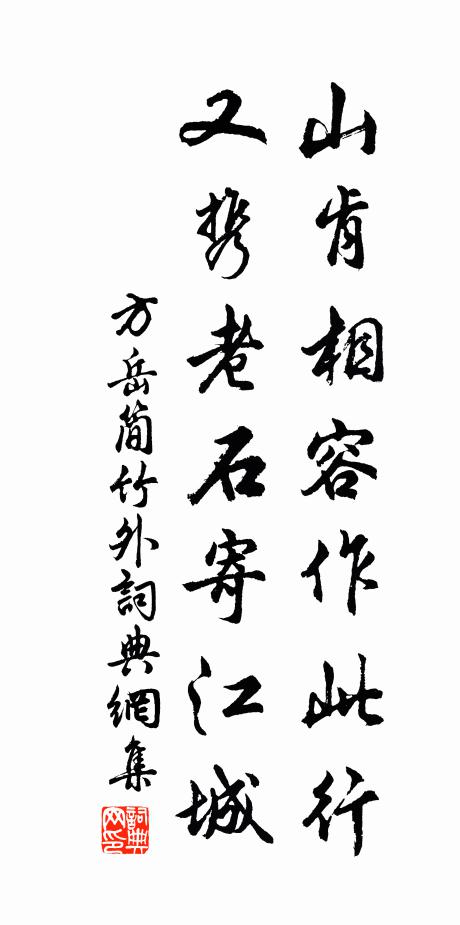 山肯相容作此行
又携老石寄江城
方岳簡竹外詞典網集
詞典
网印